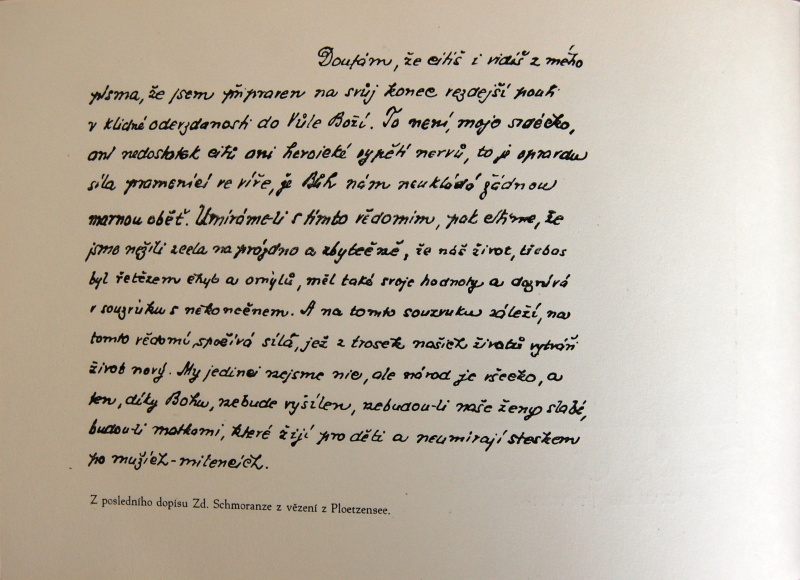 Doufám, že cítíš i vidíš z mého
písma, že jsem připraven na svůj konec zezdejší pouti
v klidné odevzdanosti do Vůle Boží. To není, moje srdéčko,
ani nedostatek citů ani heroické vypětí nervů, to je opravdu
síla pramenící ve víře, že Bůh nám neukládá žádnou
marnou oběť. Umíráme-li s tímto vědomím, pak ctíme, že
jsme nežili zcela na prázdno a zbytečně, že náš život, třebas
byl řetězem chyb a omylů, měl také svoje hodnoty a doznívá
v souzvuku s nekonečnem. A na tomto souzvuku záleží, na
tomto vědomí, spočívá síla, jež z trosek našich životů vytváří
život nový. My jedinci nejsme nic, ale národ je všecko, a
ten, díky Bohu, nebude vyšílen, nebudou-li naše ženy slabé,
budou-li matkami, které žijí pro děti a neumírají steskem
po mužích-milencích.
Z posledního dopisu Zd. Schmoranze z vězení z Ploetzensee.